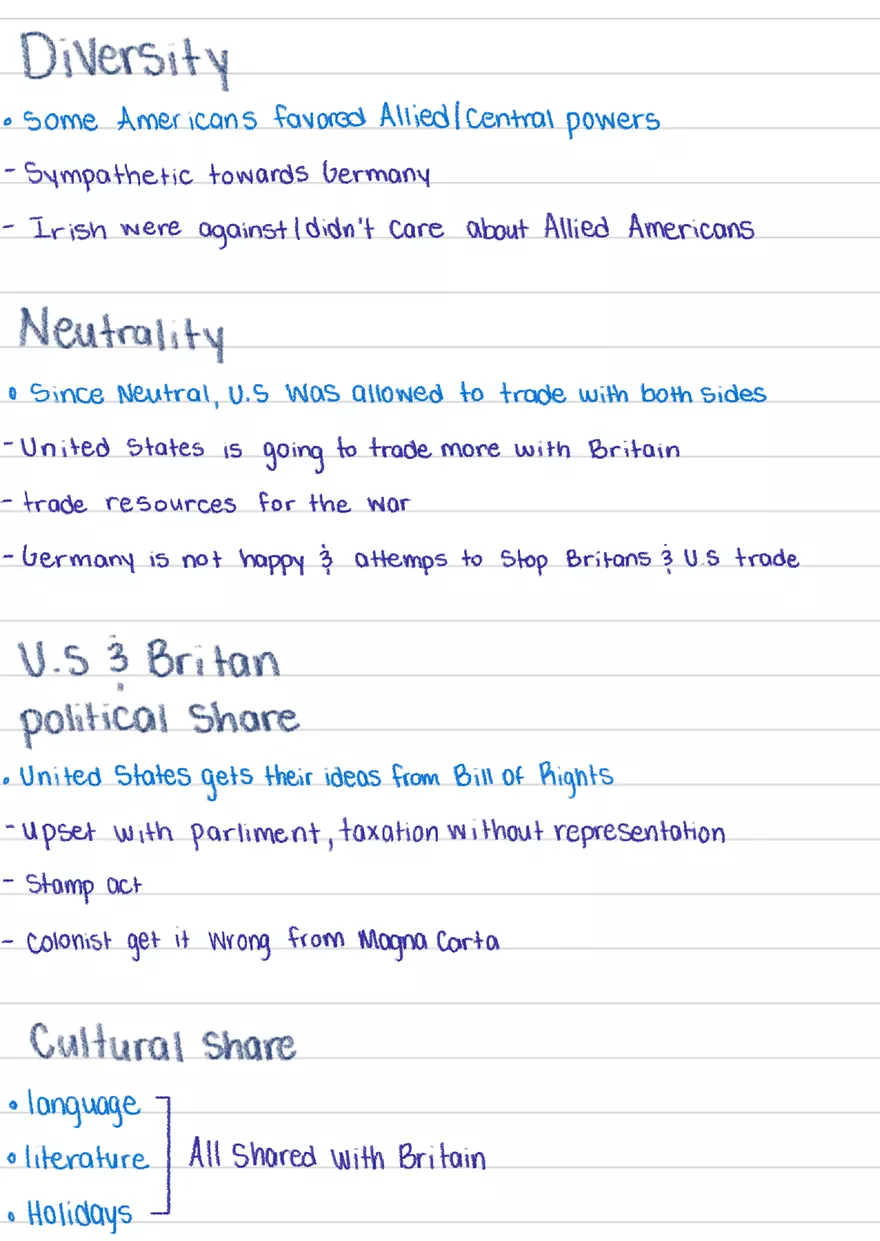 Diversity
• Some Americans favored Allied/Central powers
- Sympathetic towards Germany
- Irish were against/didn't care about Allied Americans
Neutrality
• Since Neutral, U.S was allowed to trade with both sides
- United States is going to trade more with Britain
- trade resources for the war
- Germany is not happy & attemps to Stop Britans & U.S trade
U.S & Britan
political Share
• United States gets their ideas from Bill of Rights
- upset with parliment, taxation without representation
- Stamp act
- Colonist get it wrong from Magna Carta
Cultural Share
• language
• literature All Shared with Britain
• Holidays